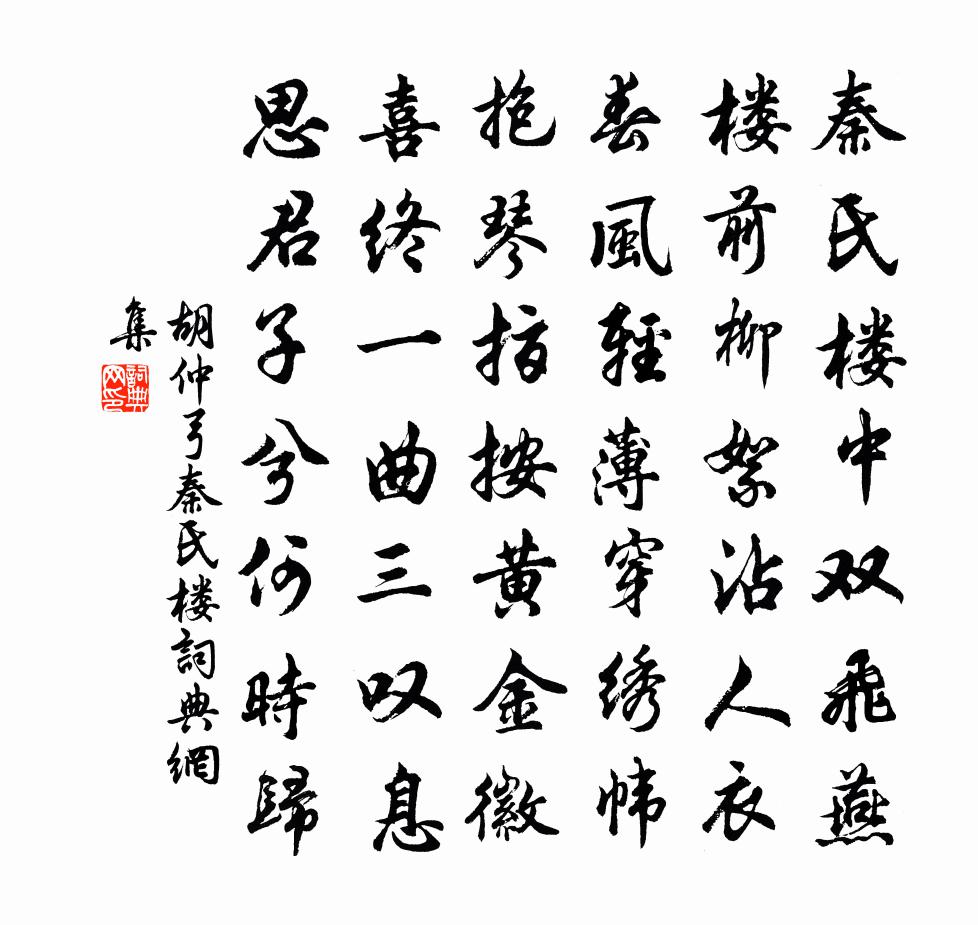 秦氏楼中双飛燕
楼前柳絮沾人衣
春風輕薄穿绣帏
抱琴指按黄金徽
喜终一曲三叹息
思君子兮何時歸
胡仲弓秦氏楼詞典網
集
詞典网印